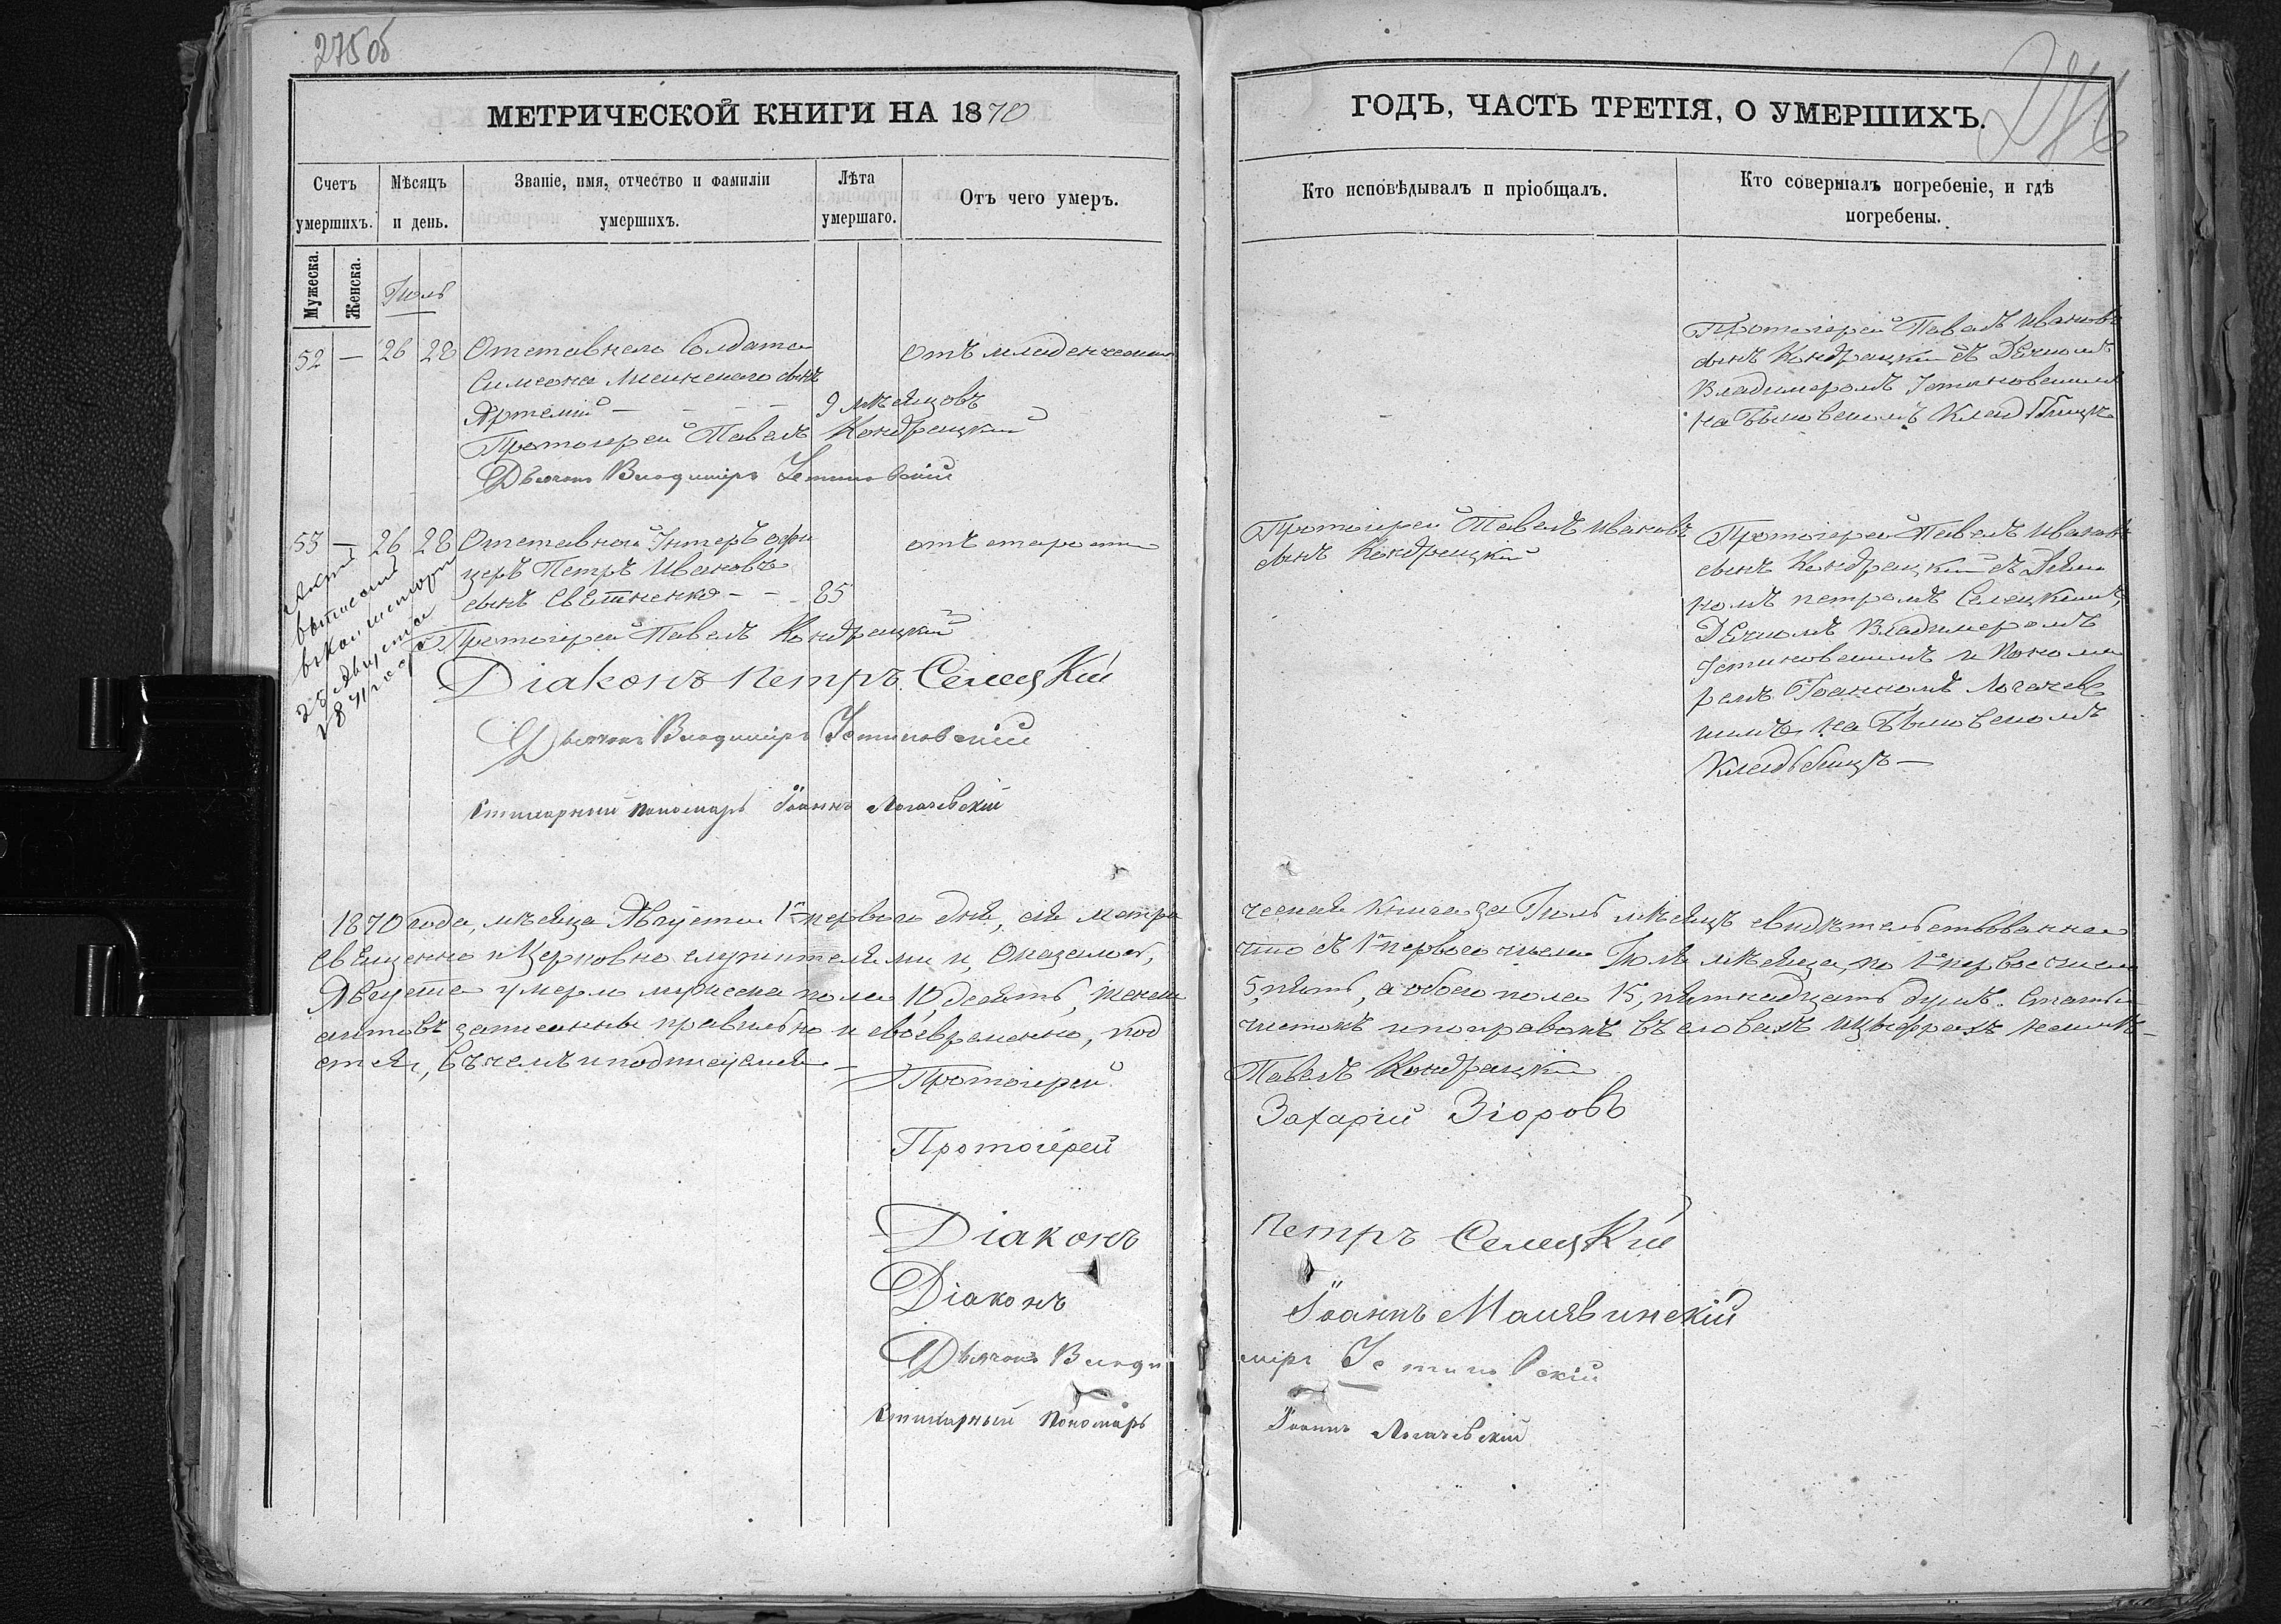 275 об
МЕТРИЧЕСКОЙ КНИГИ НА 1870
Счетъ умершихъ.
Мѣсяцъ и день.
Званіе, имя, отчество и фамиліи умершихъ.
Лѣта умершаго.
Отъ чего умеръ.
Мужеска.
Женска.
Іюль
52 — 26 28 Отставнаго Солдата
Симеона сынъ
Артемій — — — 9 мѣсяцовъ
отъ младенческой
Протоіерей Павелъ Кондрацкій
Дьячокъ Владиміръ Устиновскій
53 — 26 28 Отставной Унтеръ офи
церъ Петръ Ивановъ
сынъ — — 85
отъ старости
Протоіерей Павелъ Кондрацкій
Діаконъ Петръ Селецкій
Дьячокъ Владиміръ Устиновскій
Стихарный пономарь Іоаннъ Логачевскій
Актъ
выписанъ
въ консисторію
28 Августа
1871 года
1870 года, мѣсяца Августа 1го перваго дня, сія метри
священно и Церковно служителями и, Оказалось,
Августа умерло мужеска пола 10 десять, женска
актовъ записаны правильно и своевременно, под
ется, въ чемъ и подписуемся —
Протоіерей
Протоіерей
Діаконъ
Діаконъ
Дьячокъ Влади
Стихарный Пономарь
ГОДЪ, ЧАСТЬ ТРЕТІЯ, О УМЕРШИХЪ.
276
Кто исповѣдывалъ и пріобщалъ.
Кто совершалъ погребеніе, и гдѣ погребены.
Протоіерей Павелъ Ивановъ
сынъ Кондрацкій съ Дячкомъ
Владимеромъ Устиновскимъ
на кладбищѣ
Протоіерей Павелъ Ивановъ
сынъ Кондрацкій
Протоіерей Павелъ Ивановъ
сынъ Кондрацкій съ Діяко
номъ петромъ Селецкимъ,
Дячкомъ Владимеромъ
Устиновскимъ и Понома
ремъ Іоанномъ Логачевс
кимъ на
Кладбищѣ —
ческая книга за Іюль мѣсяцъ свидѣтельствованна
что съ 1го перваго числа Іюля мѣсяца, по 1е первое числа
5, пять, а обоего пола 15, пятнадцать душъ. Статьи
чистокъ и поправокъ въ словахъ и цыфрахъ неимѣ—
Павелъ Кондрацкій
Захарій Згоровъ
Петръ Селецкій
Іоаннъ Малявинскій
міръ Устиновскій
Іоаннъ Логачевскій